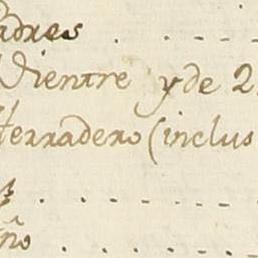 adres . . . .
Vientre y de 2
Herradero (inclus
. . . . . .
ño . . . . .